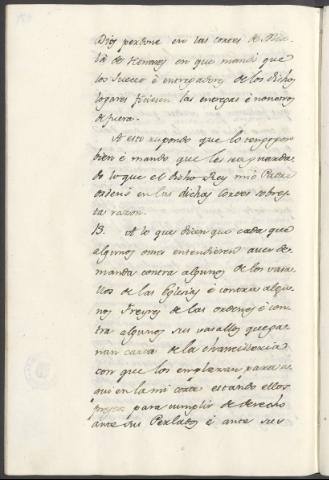 Dios perdone en las cortes de Alca
lá de Henares en que mandó que
los Jueces é entregadores de los dichos
logares ficiesen las entregas é non otros
de fuera.
A esto respondo que lo tengo por
bien é mando que les sea guarda
do lo que el dicho Rey mio Padre
ordenó en las dichas cortes sobres
ta razon.
13. A lo que dicen que cada que
algunos omes entendieren aver de
manda contra algunos de los vasa
llos de las Eglesias é contra algu
nos Freyres de las ordenes é con
tra algunos sus vasallos que ga
nan carta de la chancilleria
con que los emplazan para a
qui en la mi corte estando ellos
prestos para cumplir de derecho
ante sus Perlados é ante sus